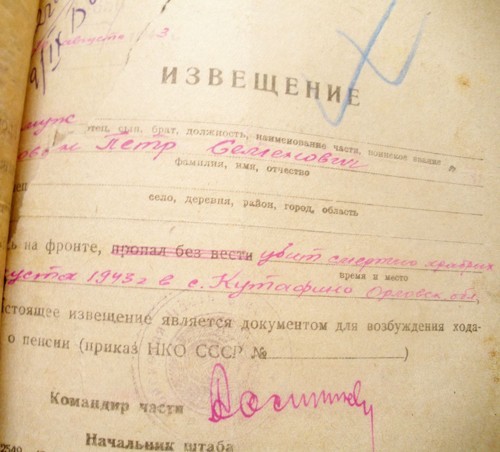 августа 43
ИЗВЕЩЕНИЕ
муж
отец, сын, брат, должность, наименование части, воинское звание
Петр Семенович
фамилия, имя, отчество
село, деревня, район, город, область
на фронте, пропал без вести убит смертью храбрых
время и место
густа 1943 г в с. Кутафино Орловск обл,
стоящее извещение является документом для возбуждения хода-
о пенсии (приказ НКО СССР № )
Командир части
Начальник штаба